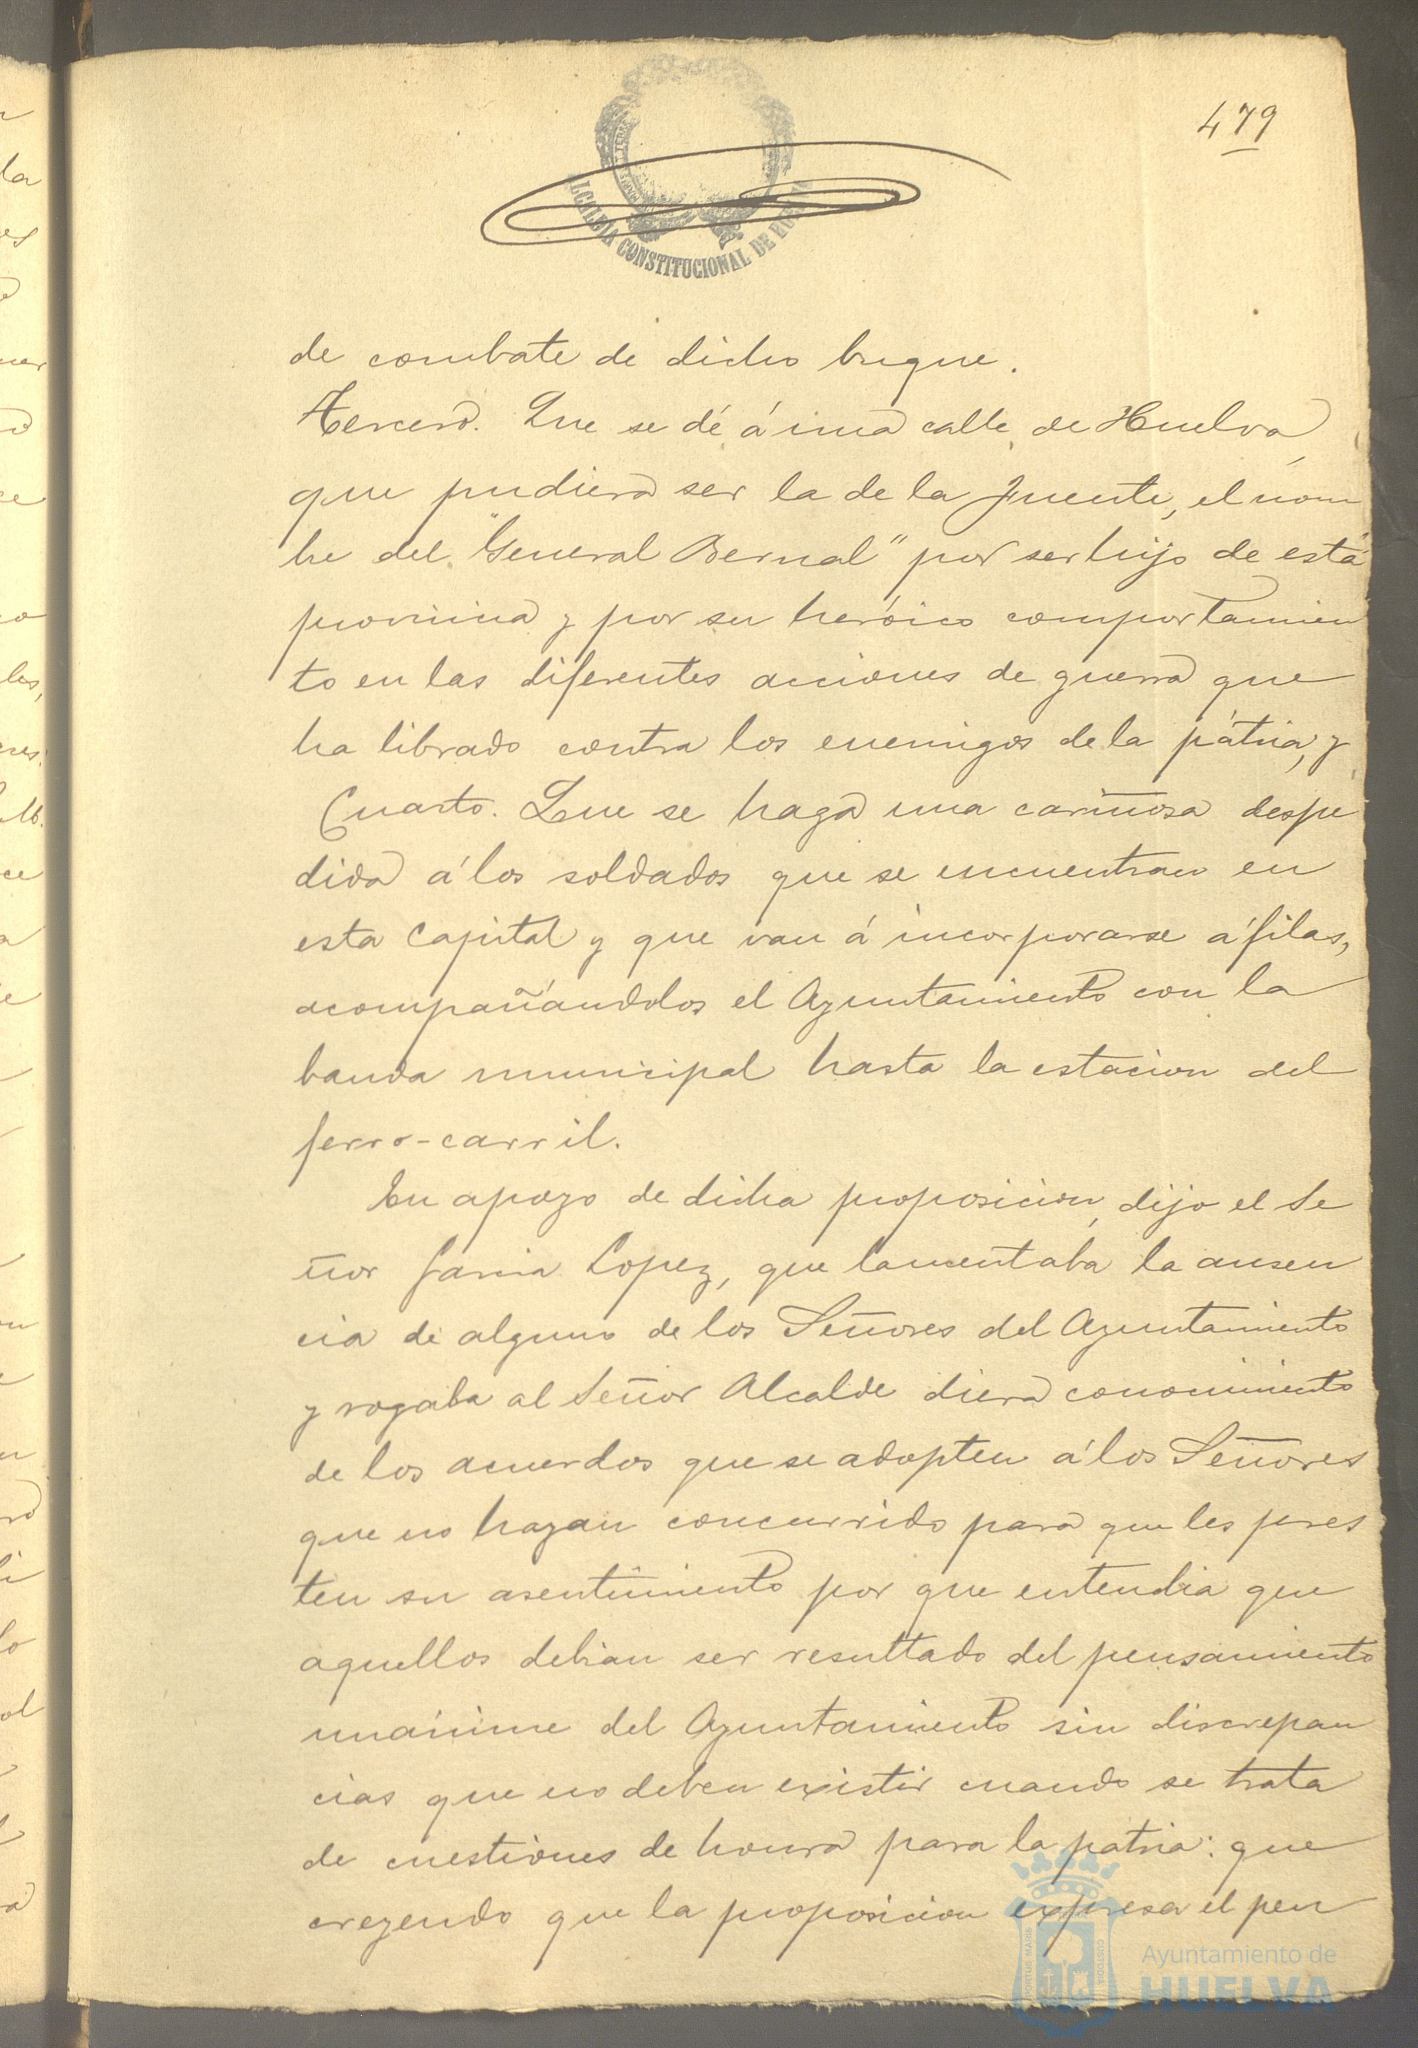 479
ALCALDIA CONSTITUCIONAL DE HUELVA
de combate de dicho buque.
Tercero. Que se dé á una calle de Huelva,
que pudiera ser la de la Fuente, el nom
bre del "General Bernal" por ser hijo de está
provincia y por su heróico comportamien
to en las diferentes acciones de guerra que
ha librado contra los enemigos de la pátria, y
Cuarto. Que se haga una cariñosa despe
dida á los soldados que se encuentran en
esta Capital y que van á incorporarse á filas,
acompañándolos el Ayuntamiento con la
banda municipal hasta la estacion del
ferro-carril.
En apoyo de dicha proposicion, dijo el Se
ñor Garcia Lopez, que lamentaba la ausen
cia de alguno de los Señores del Ayuntamiento
y rogaba al Señor Alcalde diera conocimiento
de los acuerdos que se adopten á los Señores
que no hayan concurrido para que les pres
ten su asentimiento por que entendia que
aquellos debian ser resultado del pensamiento
unánime del Ayuntamiento sin discrepan
cias que no deben existir cuando se trata
de cuestiones de honra para la patria: que
creyendo que la proposicion expresa el pen
Ayuntamiento de
HUELVA